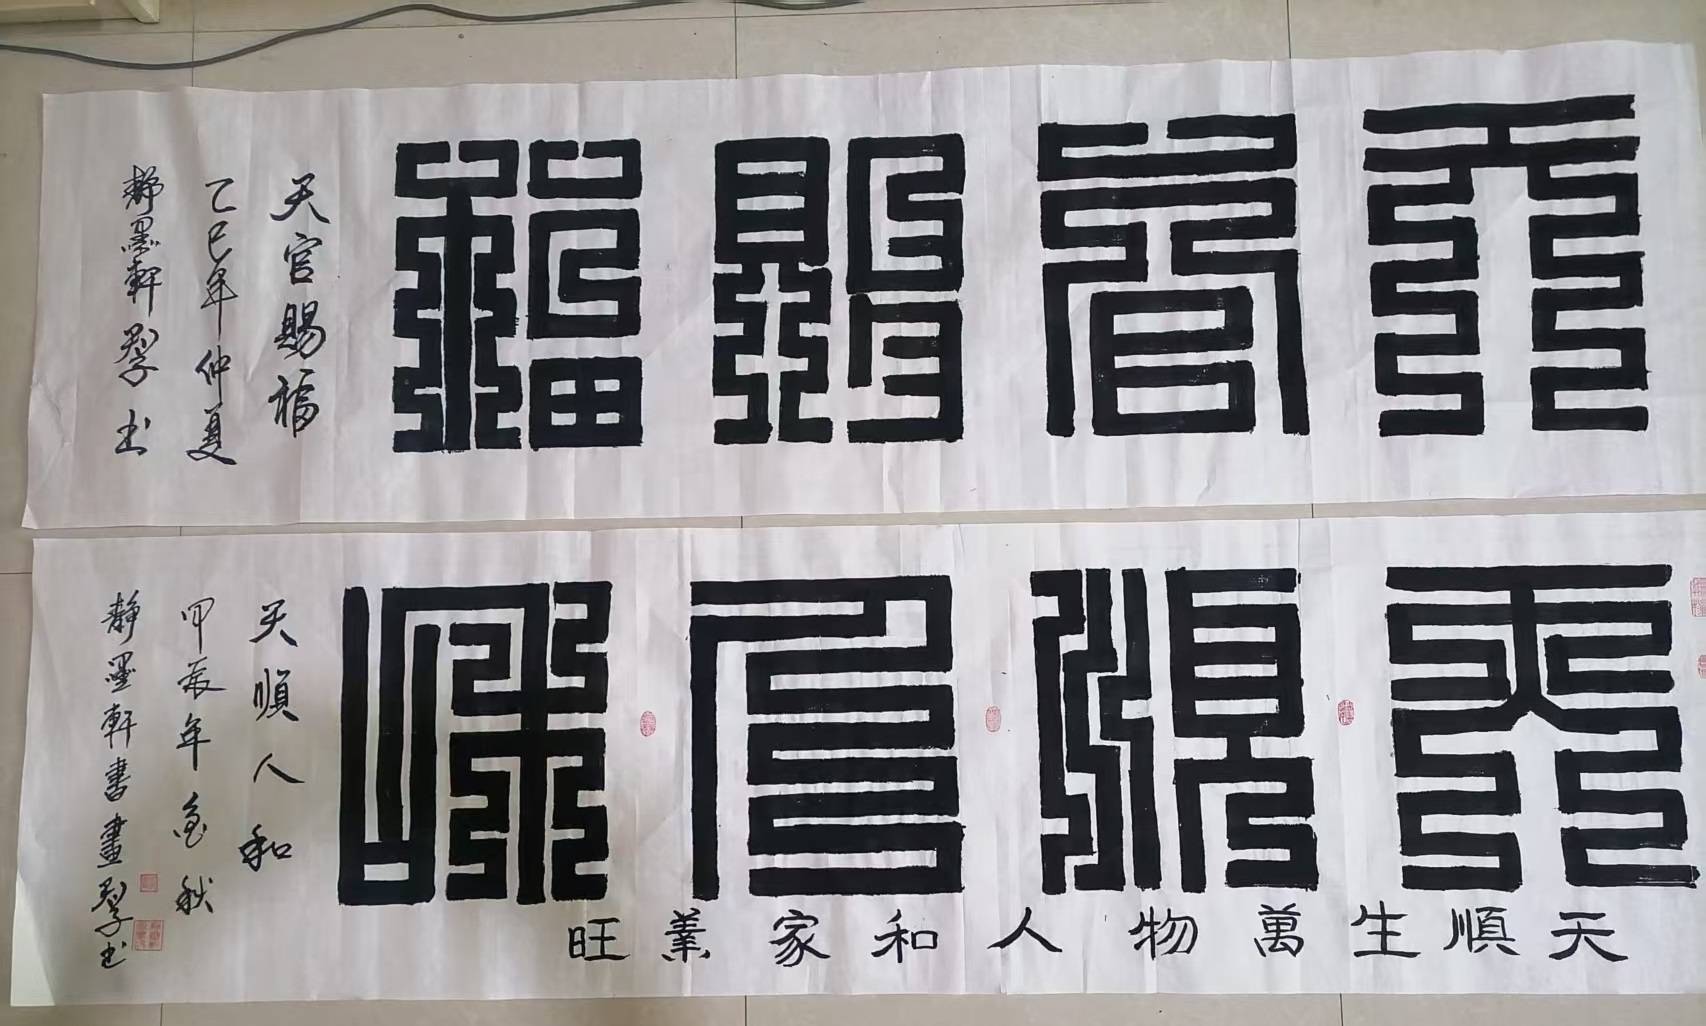 天官賜福
天官賜福
乙巳年仲夏
靜墨軒
書
天順人和
天順生萬物人和家業旺
天順人和
甲辰年金秋
靜墨軒書畫
書